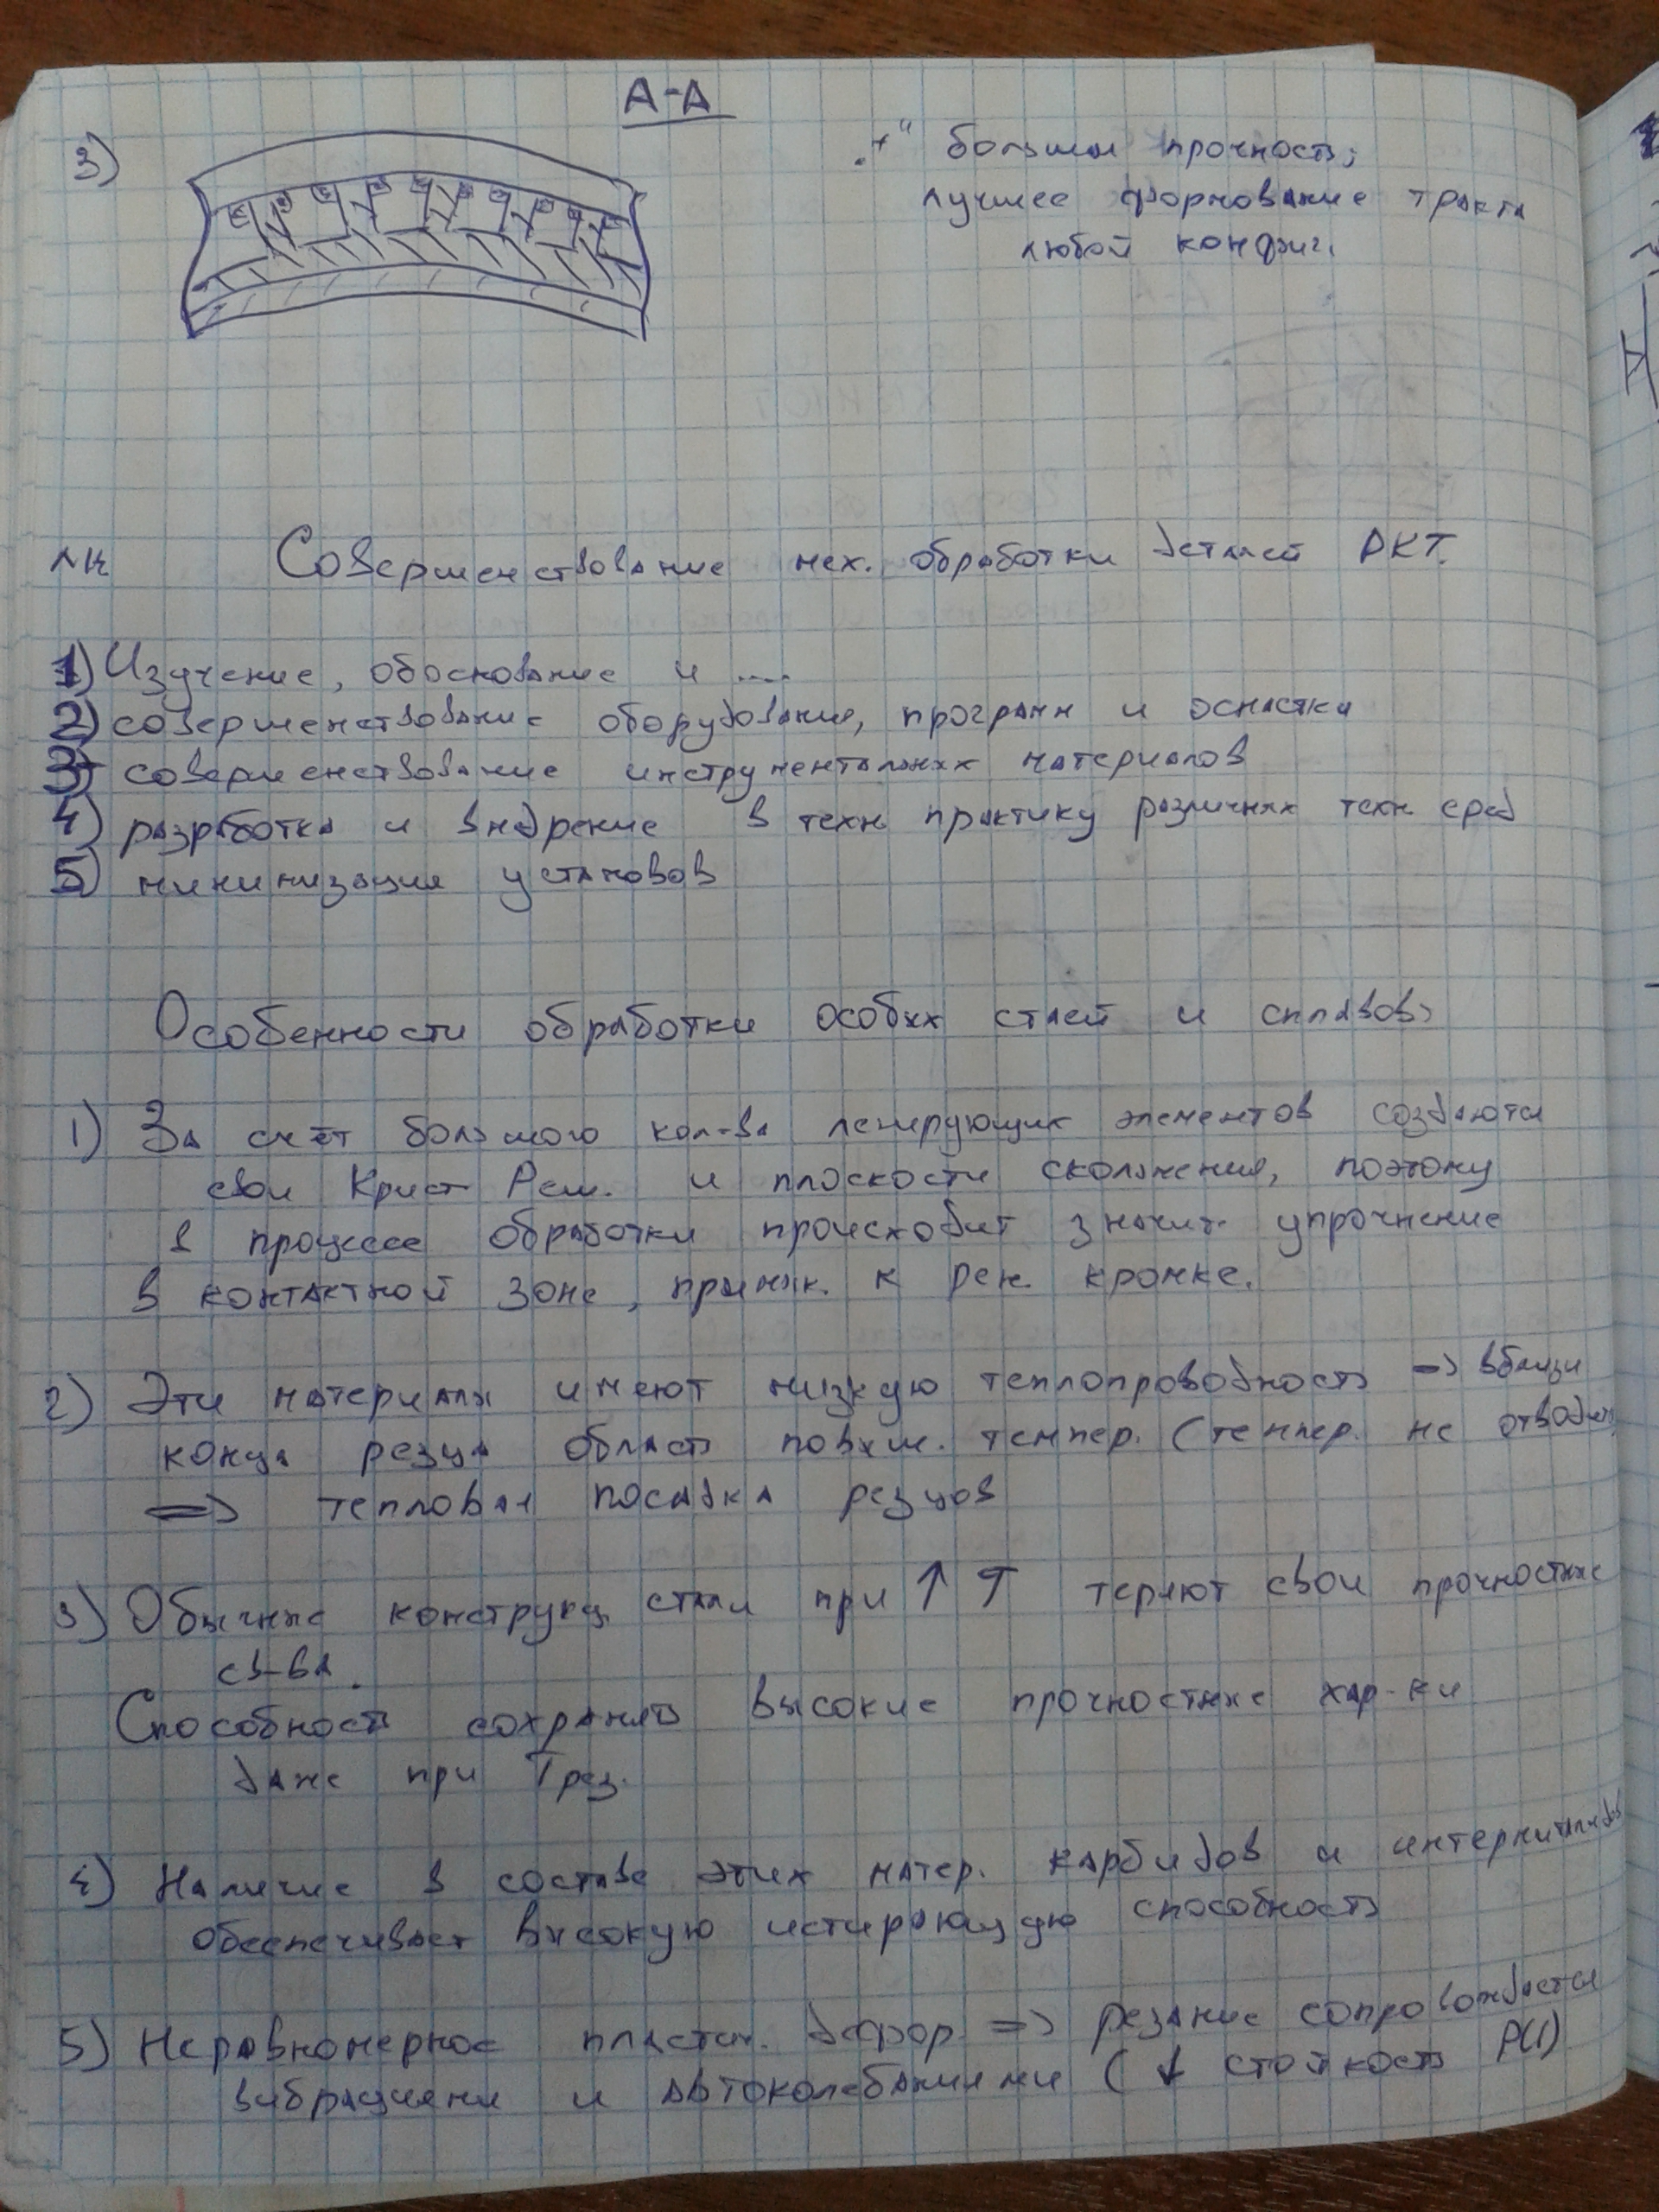 А-А
3)
"+" большая прочность;
лучшее формование тракта
любой конфиг.
Совершенствование мех. обработки деталей РКТ.
1) Изучение, обоснование и ....
2) совершенствование оборудования, программ и оснастки
3) совершенствование инструментальных материалов
4) разработка и внедрение в техн практику различных техн сред
5) минимизация установов
Особенности обработки особых сталей и сплавов:
1) За счёт большого кол-ва легирующих элементов создаются
свои Крист Реш. и плоскости скольжения, поэтому
в процессе обработки происходит значит. упрочнение
в контактной зоне, прымык. к реж. кромке.
2) Эти материалы имеют низкую теплопроводность => вблизи
конца резца область повыш. темпер. (темпер. не отводить
=> тепловая посадка резцов
3) Обычные конструкц. стали при ↑ T теряют свои прочностные
св-ва.
Способность сохранять высокие прочностные хар-ки
даже при Трез.
4) Наличие в составе этих матер. карбидов и интерметалидов
обеспечивает высокую истирающую способность
5) Неравномерное пластич. дефор. => резание сопровождается
вибрациями и автоколебаниями ( ↓ стойкость Р(I)